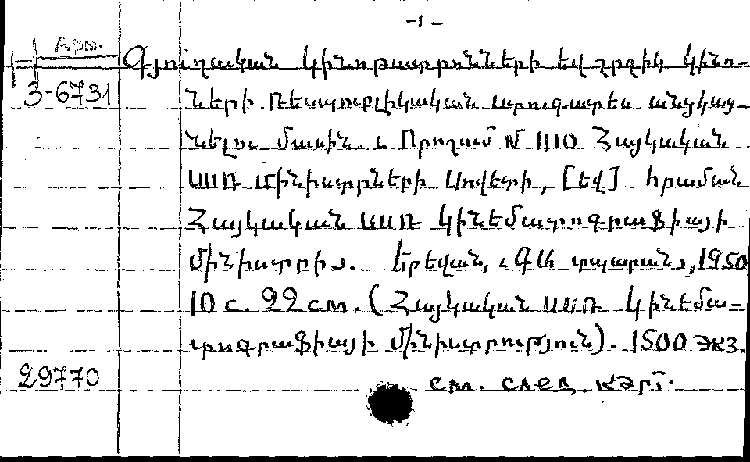 -1-
Арм.
3-6731
Գյուղական կինոթատրոնների եվ շրջիկ կինո-
ների ռեսպուբլիկական ստուգատես անցկաց-
նելու մասին: Որոշում № 1110 Հայկական
ՍՍՌ Մինիստրների Սովետի, [եվ] հրաման
Հայկական ՍՍՌ Կինեմատոգրաֆիայի
Մինիստրի: Երեվան, ՀԳԱ տպարան, 1950
10 с. 22 см. (Հայկական ՍՍՌ Կինեմա-
տոգրաֆիայի Մինիստրություն). 1500 экз.
29770
см. след. карт.